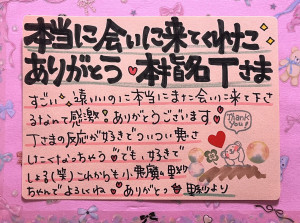 本当に会いに来てくれた
ありがとう♥本指名Tさま
すごい遠いのに本当にまた会いに来て下さ
るなんて感激!ありがとうございます
Tさまの反応が好きでついつい悪さ
いしたくなっちゃう でも、好きで
しょる(笑)これからも小悪魔
ちゃんでよろしくね♥ありがとっ
より
Thank
You!